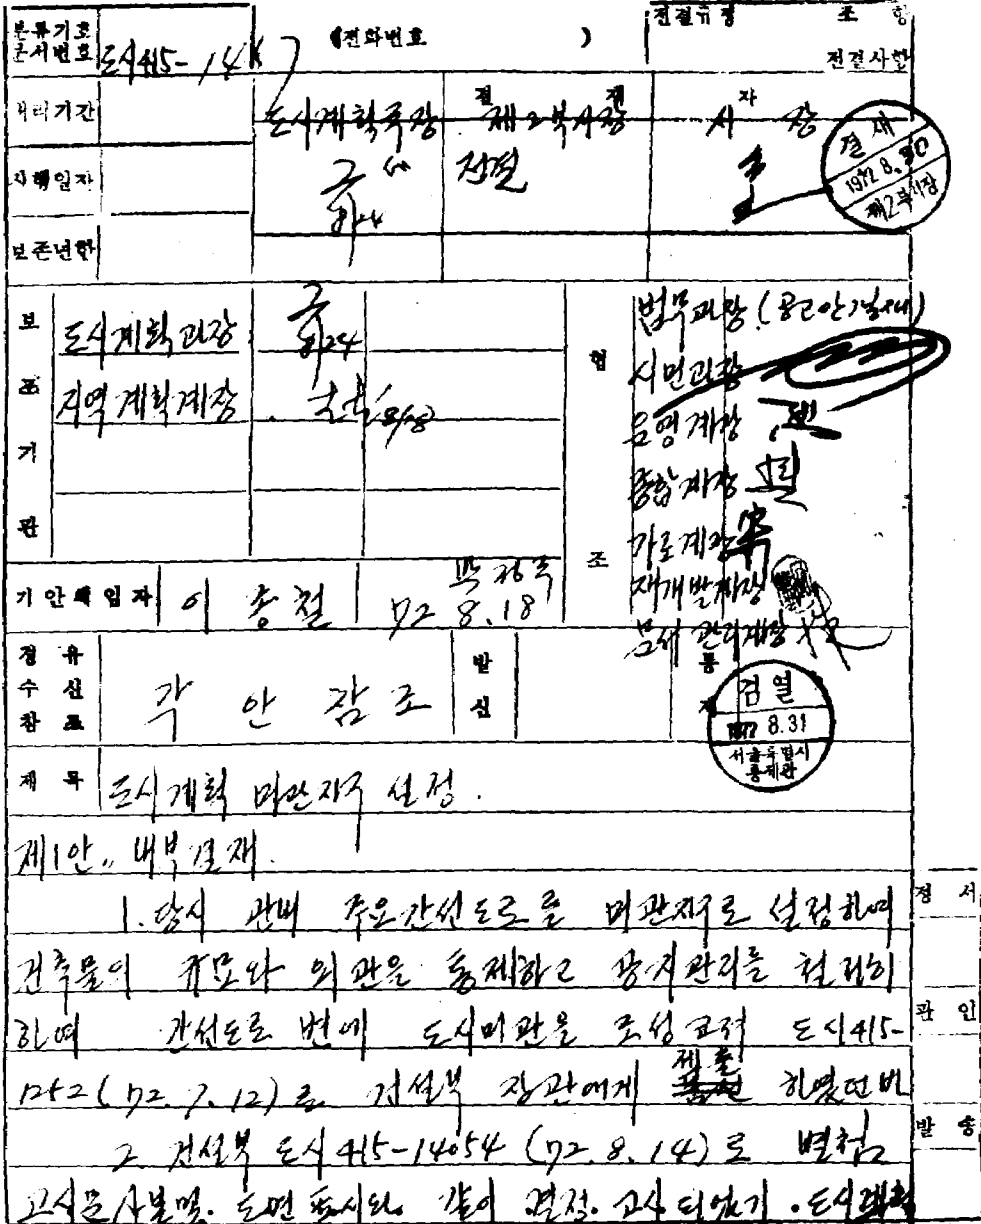 분류기호
문서번호 도시415-14
(전화번호 )
전결규정 조 항
전결사항
처리기간
결 재 자
도시계획국장 제2부시장 시 장
시행일자
전결
8/24
결재
1972 8. 30
제2부시장
보존년한
보조기관
도시계획과장
8/24
지역계획계장
협조
법무과장 (공고안
시민과장
운영계장
종합계장
가로계장
재개발계장
관리계장
기안책임자 이 종 철 72 8.18
경유
수신
참조
각 안 참 조
발신
통제
검열
1972 8.31
서울특별시
통제관
제 목 도시계획 미관지구 설정.
제1안.. 내부결재.
1. 당시 관내 주요간선도로를 미관지구로 설정하여
건축물의 규모와 외관을 통제하고 공지관리를 철저히
하여 간선도로 변에 도시미관을 조성코저 도시415-
(72. 7. 12)로 건설부 장관에게 제출 하였던바
2. 건설부 도시415-14054 (72. 8. 14)로 별첨
고시문 사본및. 도면 표시와 같이 결정. 고시 되었기. 도시계획
정 서
관 인
발 송